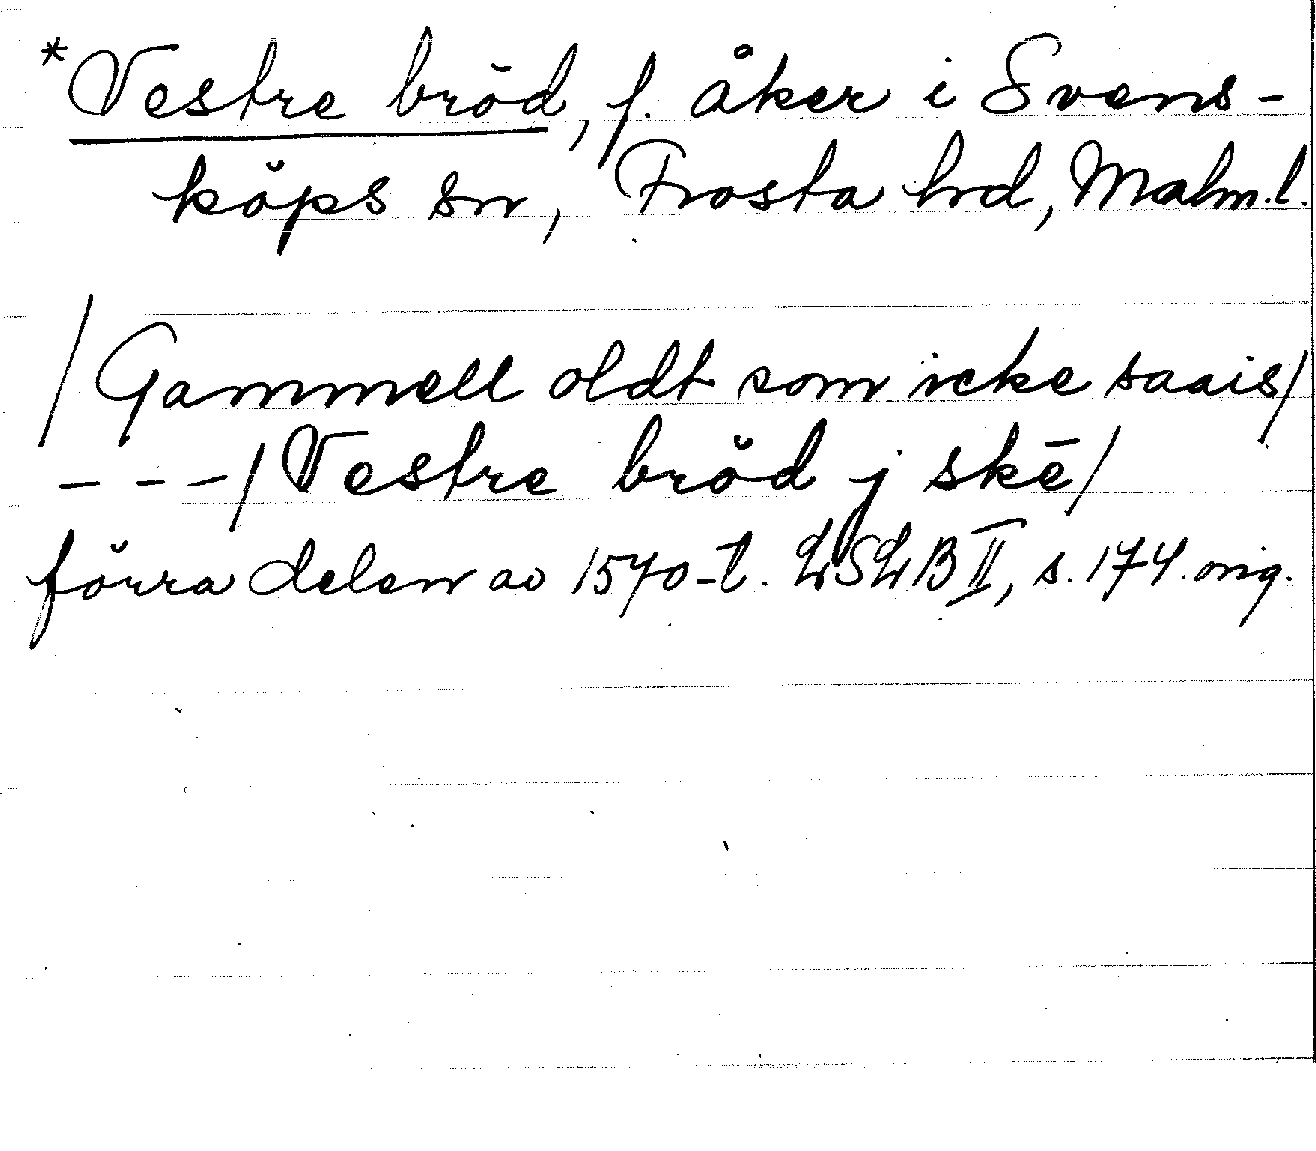 *Vestre bröd, f. åker i Svens-
köps sn, Frosta hrd, Malm.l.
/Gammell oldt som icke saais/
---/Vestre bröd j skē/
förra delen av 1570-t. LSLB II, s. 174. orig.